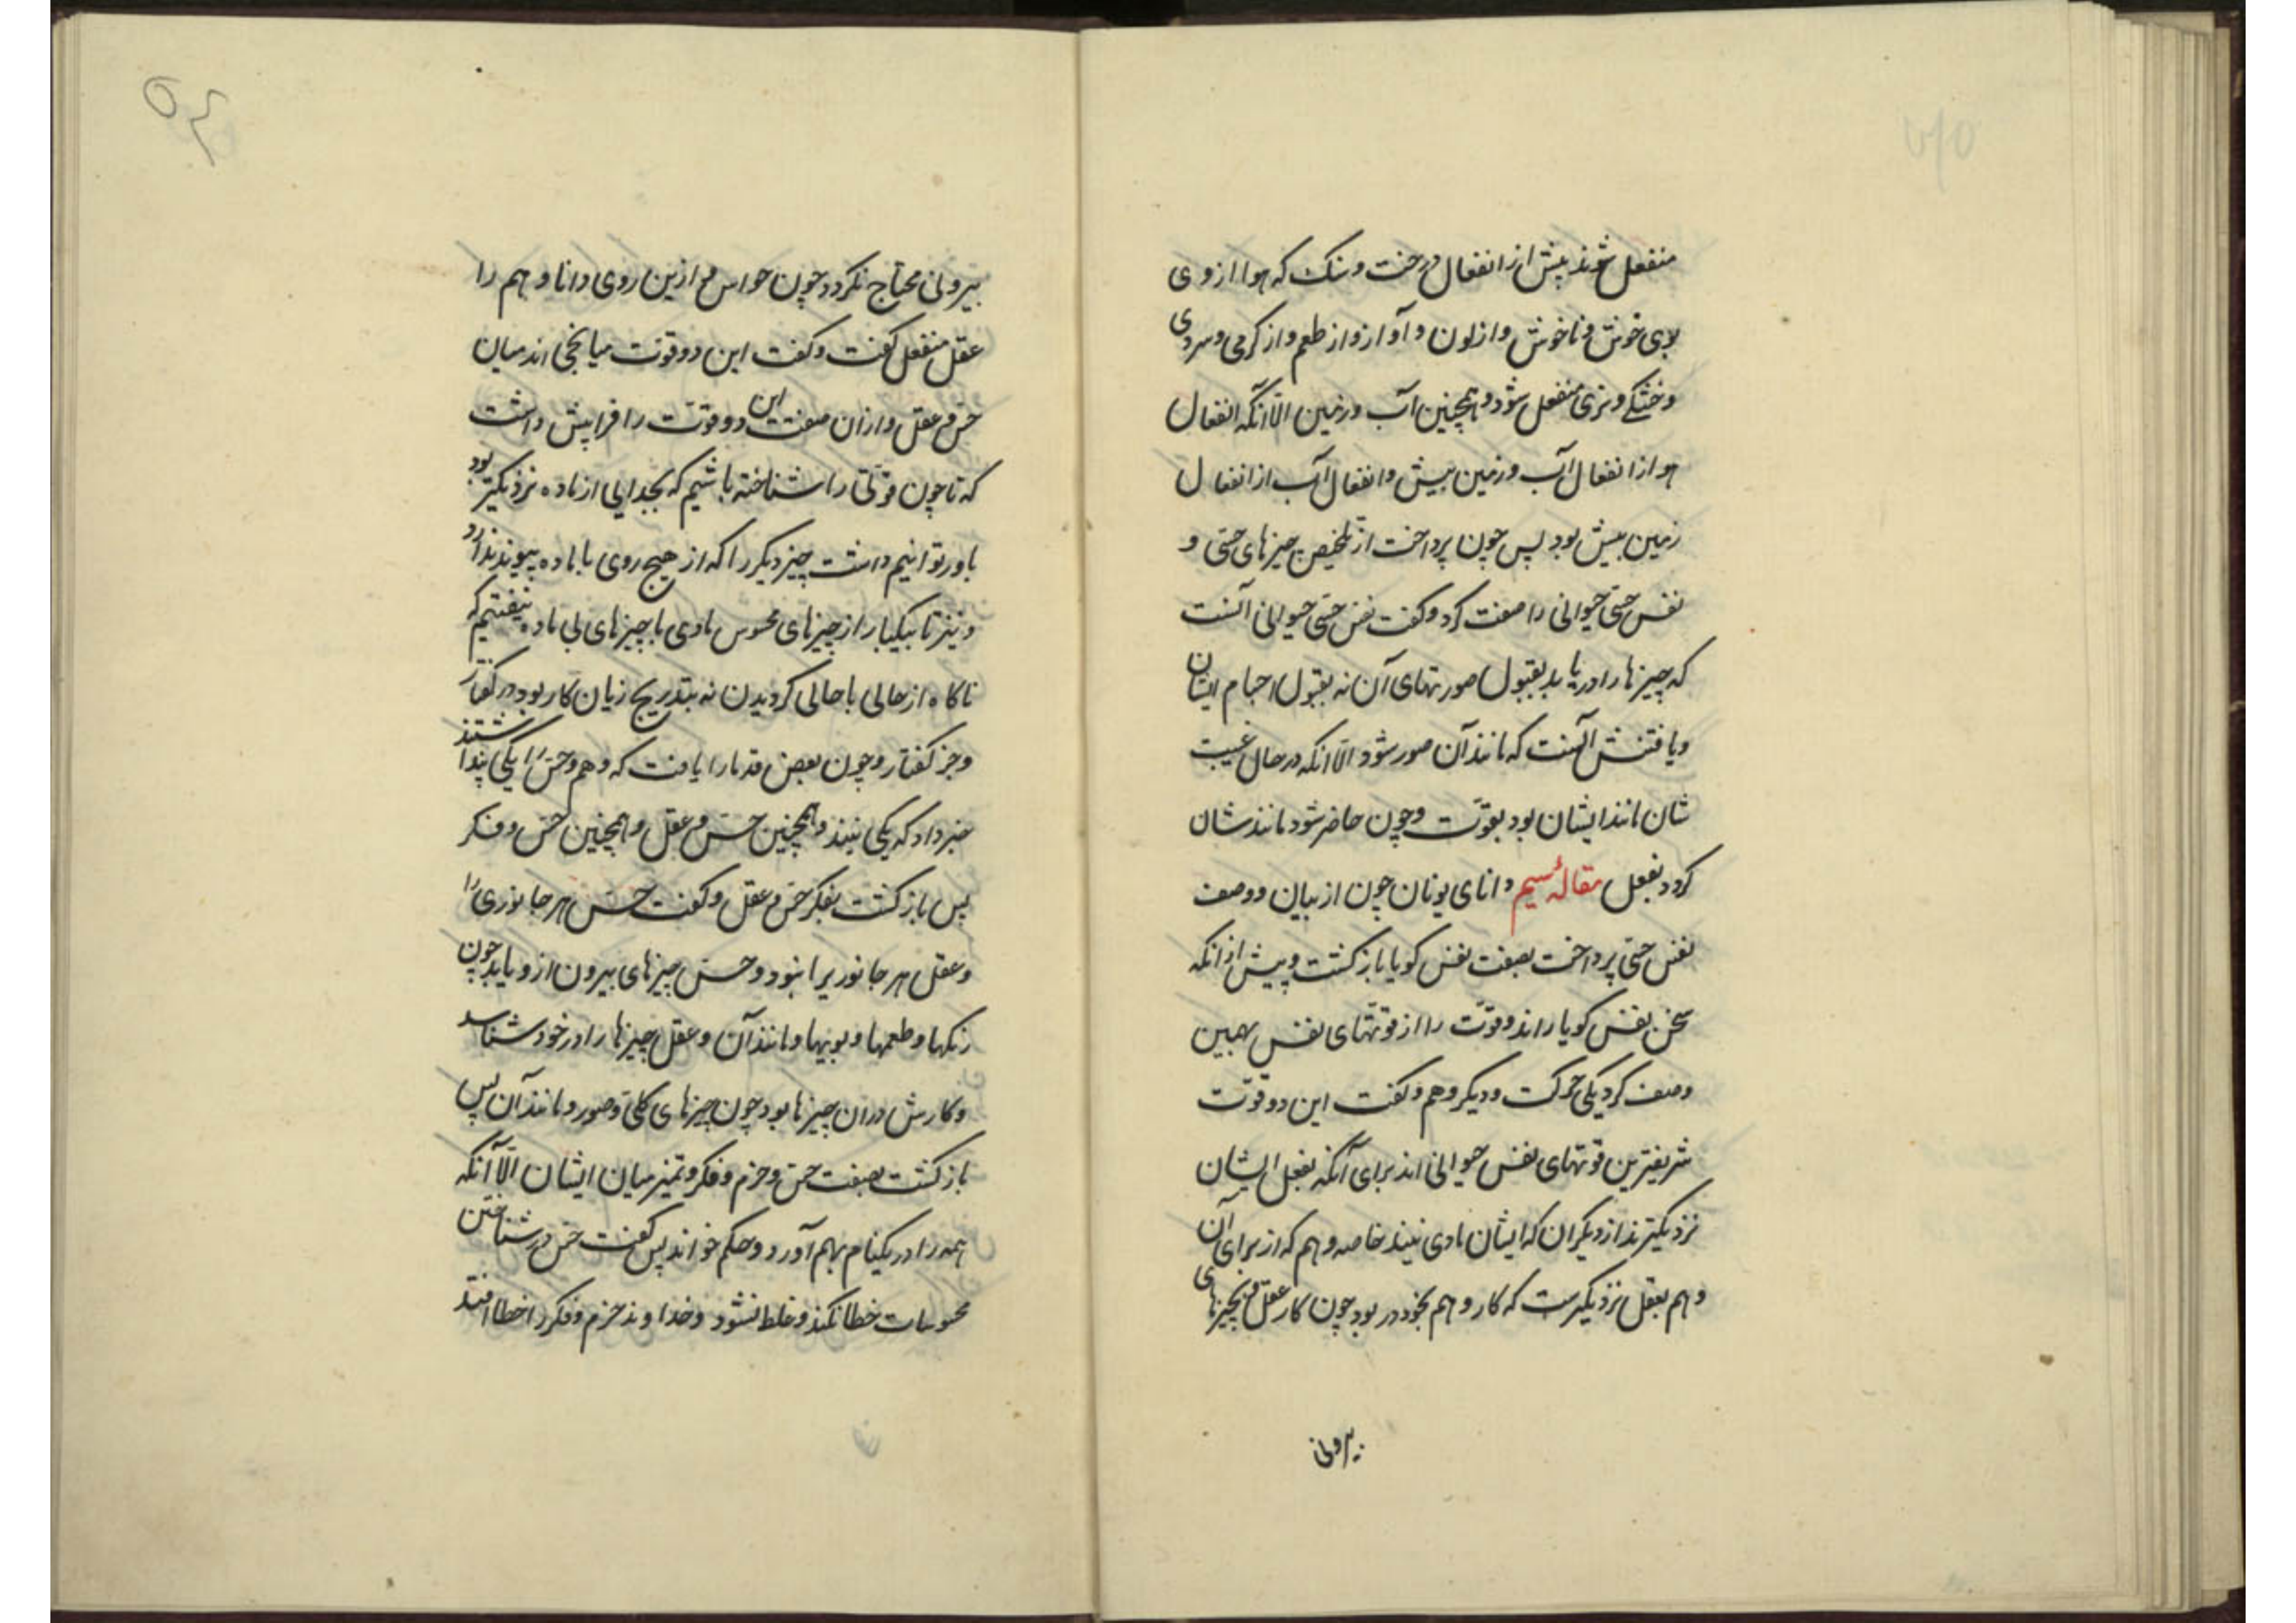 منفعل شوند پیش از انفعال درخت و سنک که هوا از وی
بوی خوش و ناخوش و از لون و آواز و از طعم و از کرمی و سردی
و خشکی و تری منفعل شود و همچنین آب و زمین الّا آنکه انفعال
هوا از انفعال آب و زمین بیش و انفعال آب از انفعال
زمین بیش بود پس چون پرداخت از تلخیص چیزهای حسّی و
نفس حسّی حیوانی را صفت کرد و کفت نفس حسّی حیوانی آنست
که چیزها را دریابد بقبول صورتهای آن نه بقبول اجسام ایشان
و یافتنش آنست که مانند آن صور شود الّا انکه در حال غیبت
شان مانند ایشان بود بقوّت و چون حاضر شود مانند شان
کردد بفعل مقالهٔ سیم دانای یونان چون از بیان و وصف
نفس حسّی پرداخت بصفت نفس کویا بازکشت و پیش از انکه
سخن بنفس کویا راند دو قوّت را از قوّتهای نفس بهمین
وصف کرد یکی حرکت و دیکر وهم و کفت این دو قوّت
شریفترین قوتهای نفس حیوانی اند برای آنکه بفعل ایشان
نزدیکترند از دیکران که ایشان مادی نیند خاصه وهم که از برای آن
وهم بعقل نزدیکترست که کار وهم بخود در بود چون کار عقل و بچیزهای
بیرونی
بیرونی محتاج نکردد چون حواس و ازین روی دانا وهم را
عقل منفعل کفت و کفت این دو قوّت میانجی اند میان
حس و عقل و از ان صفت این دو قوّت را فرا پیش داشت
که تا چون قوّتی را شناخته باشیم که بجدایی از ماده نزدیکتر بود
باور توانیم داشت چیز دیکر را که از هیچ روی با ماده پیوند ندارد
و نیز تا بیکبار از چیزهای محسوس مادی با چیزهای بی ماده نیفتیم که
ناکاه از حالی با حالی کردیدن نه بتدریج زیان کار بود در کفتار
و جز کفتار و چون بعض قدما را یافت که وهم و حس را یکی پنداشتند
خبر داد که یکی نیند و همچنین حس و عقل و همچنین حس و فکر
پس بازکشت بفکر حس و عقل و کفت حس هر جانوری را
و عقل هر جانوریرا نبود و حس چیزهای بیرون از و یابد چون
رنکها و طعمها و بویها و مانند آن و عقل چیزها را در خود شناسد
و کارش در ان چیزها بود چون چیزهای کلّی و صور و مانند آن پس
بازکشت بصفت حس و حزم و فکر و تمیز میان ایشان الّا آنکه
همه را در یکنام بهم آورد و حکم خواند پس کفت حس در شناختن
محسوسات خطا نکند و غلط نشود و خداوند حزم و فکر را خطا افتد